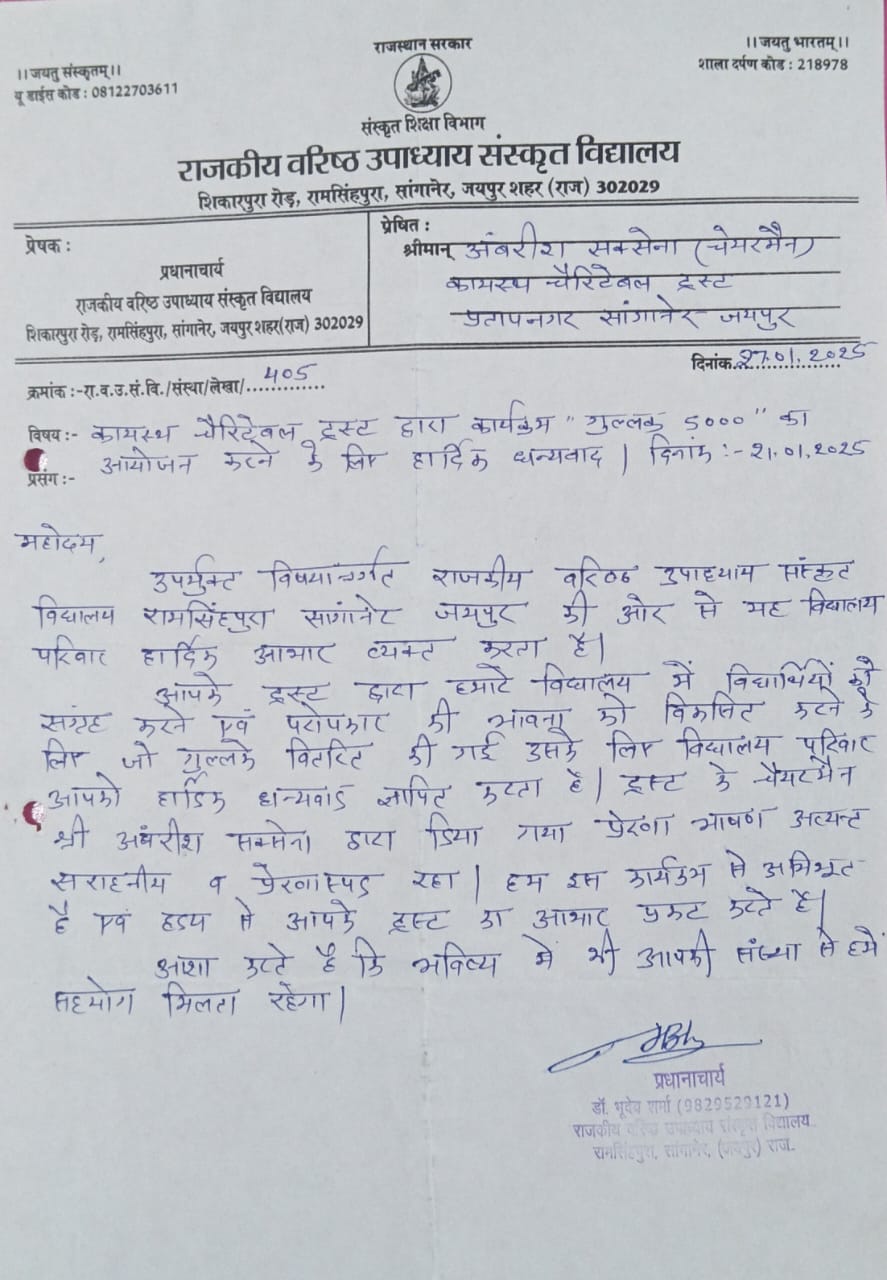 राजस्थान सरकार
।।जयतु संस्कृतम्।।
यू डाईस कोड : 08122703611
।।जयतु भारतम्।।
शाला दर्पण कोड : 218978
संस्कृत शिक्षा विभाग
राजकीय वरिष्ठ उपाध्याय संस्कृत विद्यालय
शिकारपुरा रोड़, रामसिंहपुरा, सांगानेर, जयपुर शहर (राज) 302029
प्रेषक :
प्रधानाचार्य
राजकीय वरिष्ठ उपाध्याय संस्कृत विद्यालय
शिकारपुरा रोड़, रामसिंहपुरा, सांगानेर, जयपुर शहर(राज) 302029
प्रेषित :
श्रीमान् अंबरीश सक्सेना (चेयरमैन)
कायस्थ चैरिटेबल ट्रस्ट
प्रतापनगर सांगानेर जयपुर
दिनांक 27.01.2025
क्रमांक :-रा.व.उ.सं.वि./संस्था/लेखा/ 405
विषय :- कायस्थ चैरिटेबल ट्रस्ट द्वारा कार्यक्रम "गुल्लक 5000" का
आयोजन करने के लिए हार्दिक धन्यवाद | दिनांक :- 21.01.2025
प्रसंग :-
महोदय,
उपर्युक्त विषयान्तर्गत राजकीय वरिष्ठ उपाध्याय संस्कृत
विद्यालय रामसिंहपुरा सागांनेर जयपुर की ओर से यह विद्यालय
परिवार हार्दिक आभार व्यक्त करता है।
आपके ट्रस्ट द्वारा हमारे विद्यालय में विद्यार्थियों को
संग्रह करने एवं परोपकार की भावना को विकसित करने के
लिए जो गुल्लके वितरित की गई उसके लिए विद्यालय परिवार
आपको हार्दिक धन्यवाद ज्ञापित करता है | ट्रस्ट के चैयरमैन
श्री अंबरीश सक्सेना द्वारा दिया गया प्रेरणा भाषण अत्यन्त
सराहनीय व प्रेरणास्पद रहा | हम इस कार्यक्रम से अभिभूत
है एवं हृदय से आपके ट्रस्ट का आभार प्रकट करते हैं।
आशा करते है कि भविष्य में भी आपकी संस्था से हमें
सहयोग मिलता रहेगा |
प्रधानाचार्य
डॉ. भूदेव शर्मा (9829529121)
राजकीय वरिष्ठ उपाध्याय संस्कृत विद्यालय
रामसिंहपुरा, सांगानेर, (जयपुर) राज.